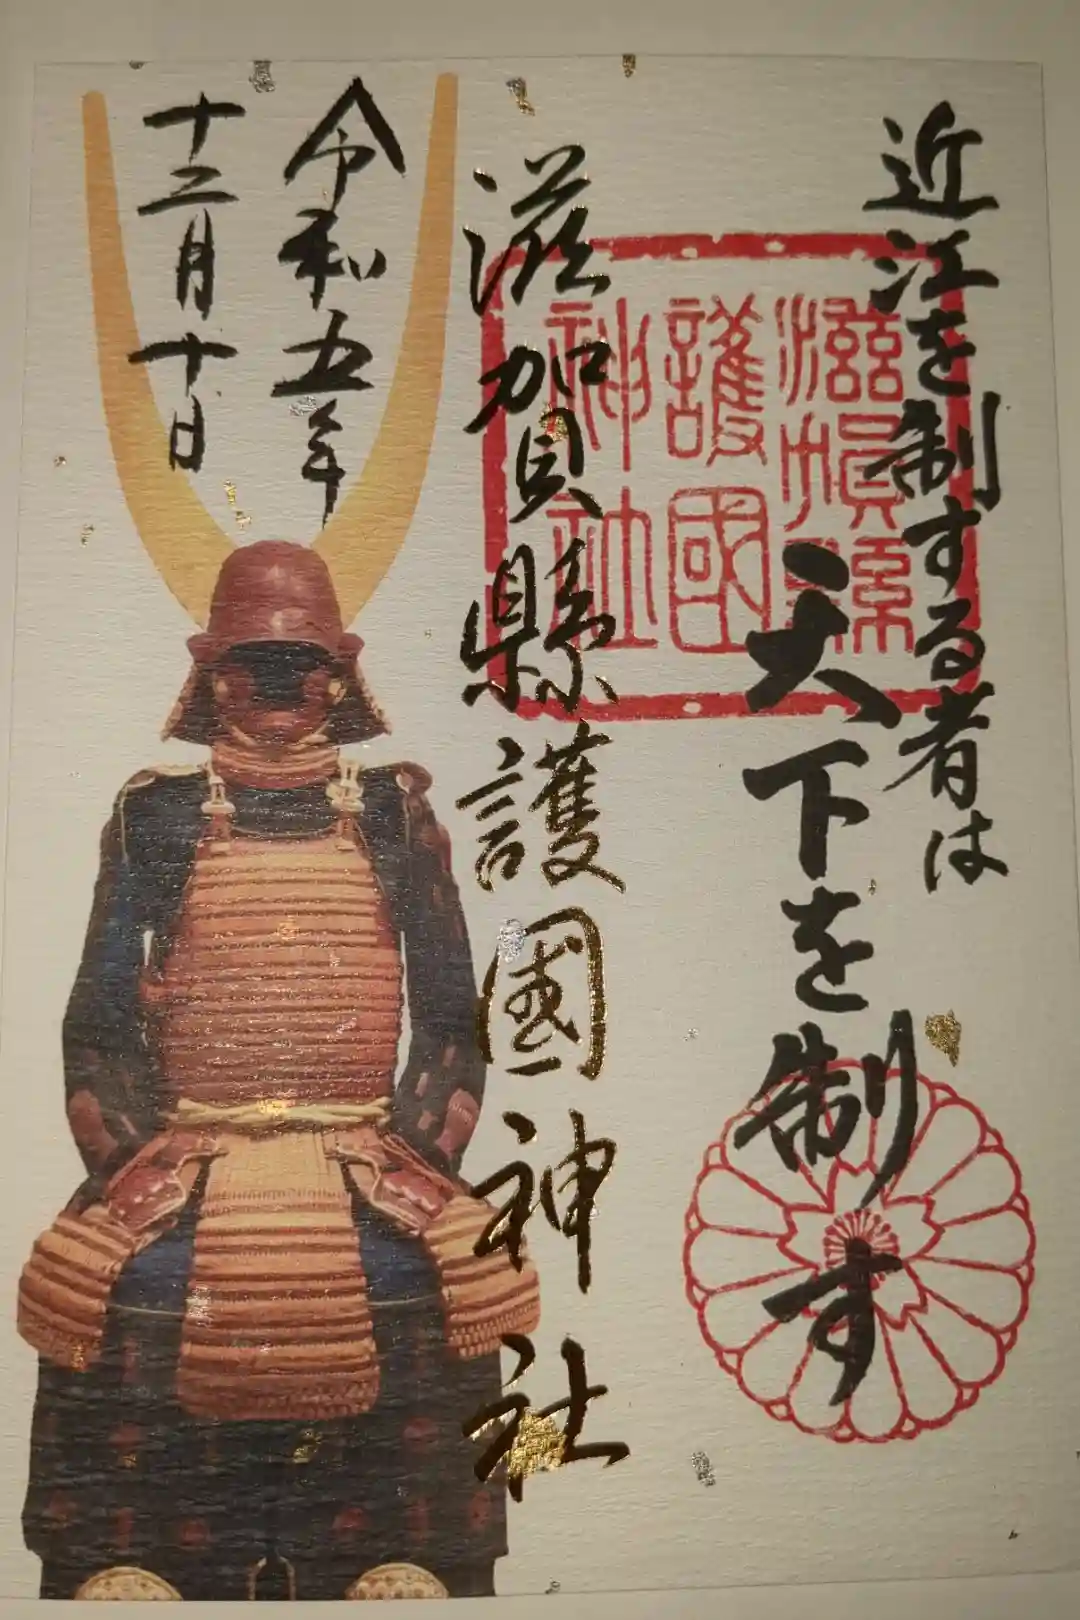 近江を制する者は
天下を制す
滋賀縣護國神社
滋賀縣
護國
神社
令和五年
十二月十日